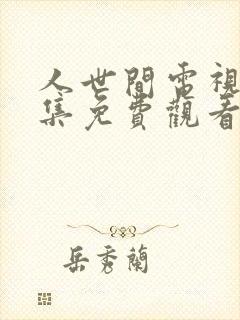 人世間電視
集免費觀看
岳秀蘭